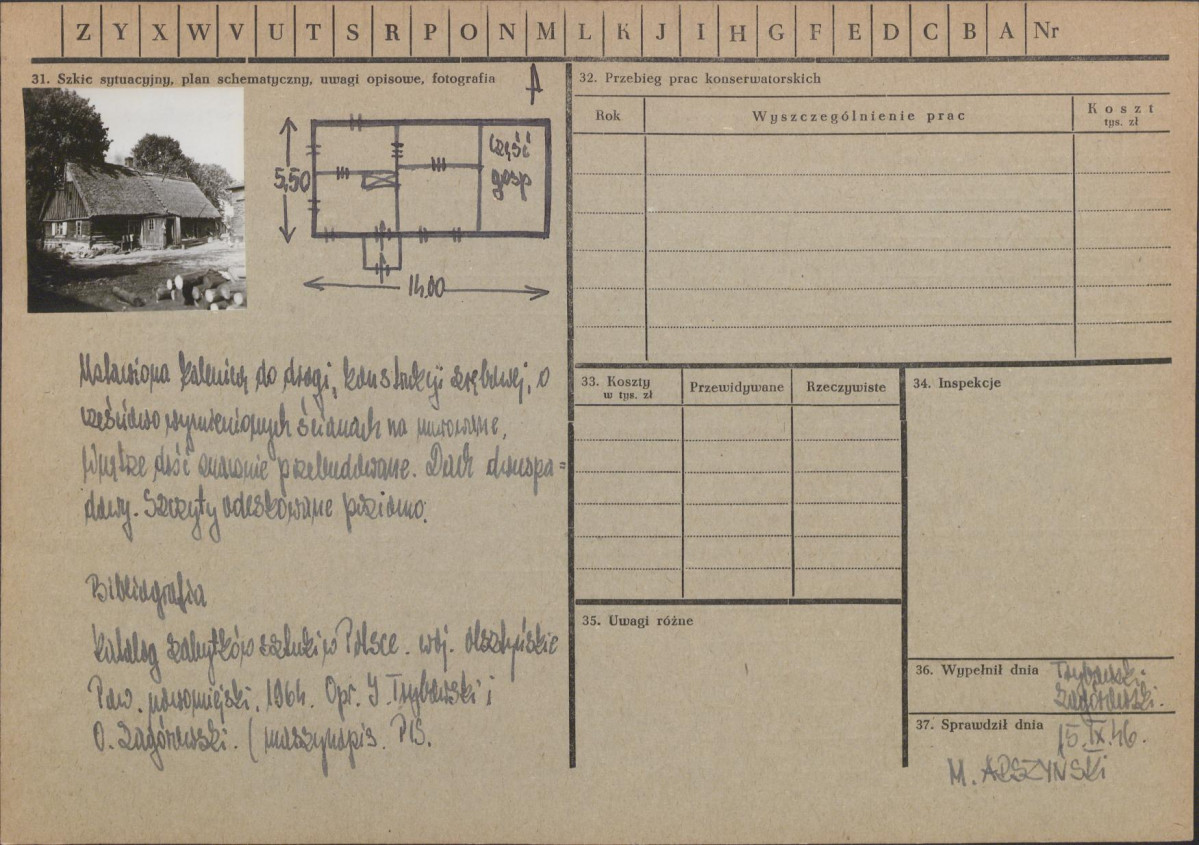 Z Y X W V U T S R P O N M L K J I H G F E D C B A Nr
31. Szkic sytuacyjny, plan schematyczny, uwagi opisowe, fotografia
5,50
część
gosp
14.00
kalenicą do drogi, konstrukcji zrębowej, o
częściowo wymienionych ścianach na murowane,
Wnętrze dość znacznie przebudowane. Dach dwuspa=
dowy. Szczyty odeskowane poziomo.
Bibliografia
Katalog zabytków sztuki w Polsce. woj. olsztyńskie
Pow. nowomiejski. 1964. Opr. J. Trybowski i
O. Zagórowski. (maszynopis. PIS.
32. Przebieg prac konserwatorskich
Rok
Wyszczególnienie prac
Koszt
tys. zł
33. Koszty
w tys. zł
Przewidywane
Rzeczywiste
34. Inspekcje
35. Uwagi różne
36. Wypełnił dnia Trybowski.
Zagórowski.
37. Sprawdził dnia 15.IX.
M. ARSZYŃSKI